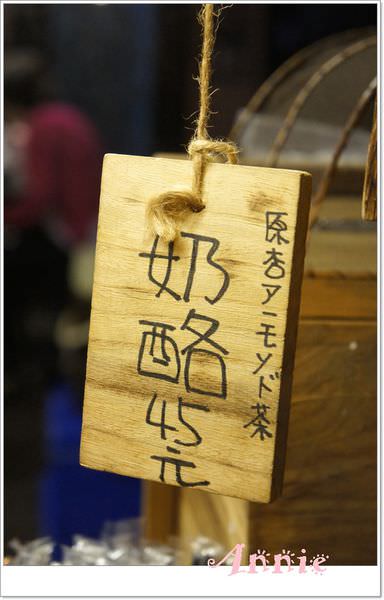 原杏アーモソド茶
奶酪
45元
Annie